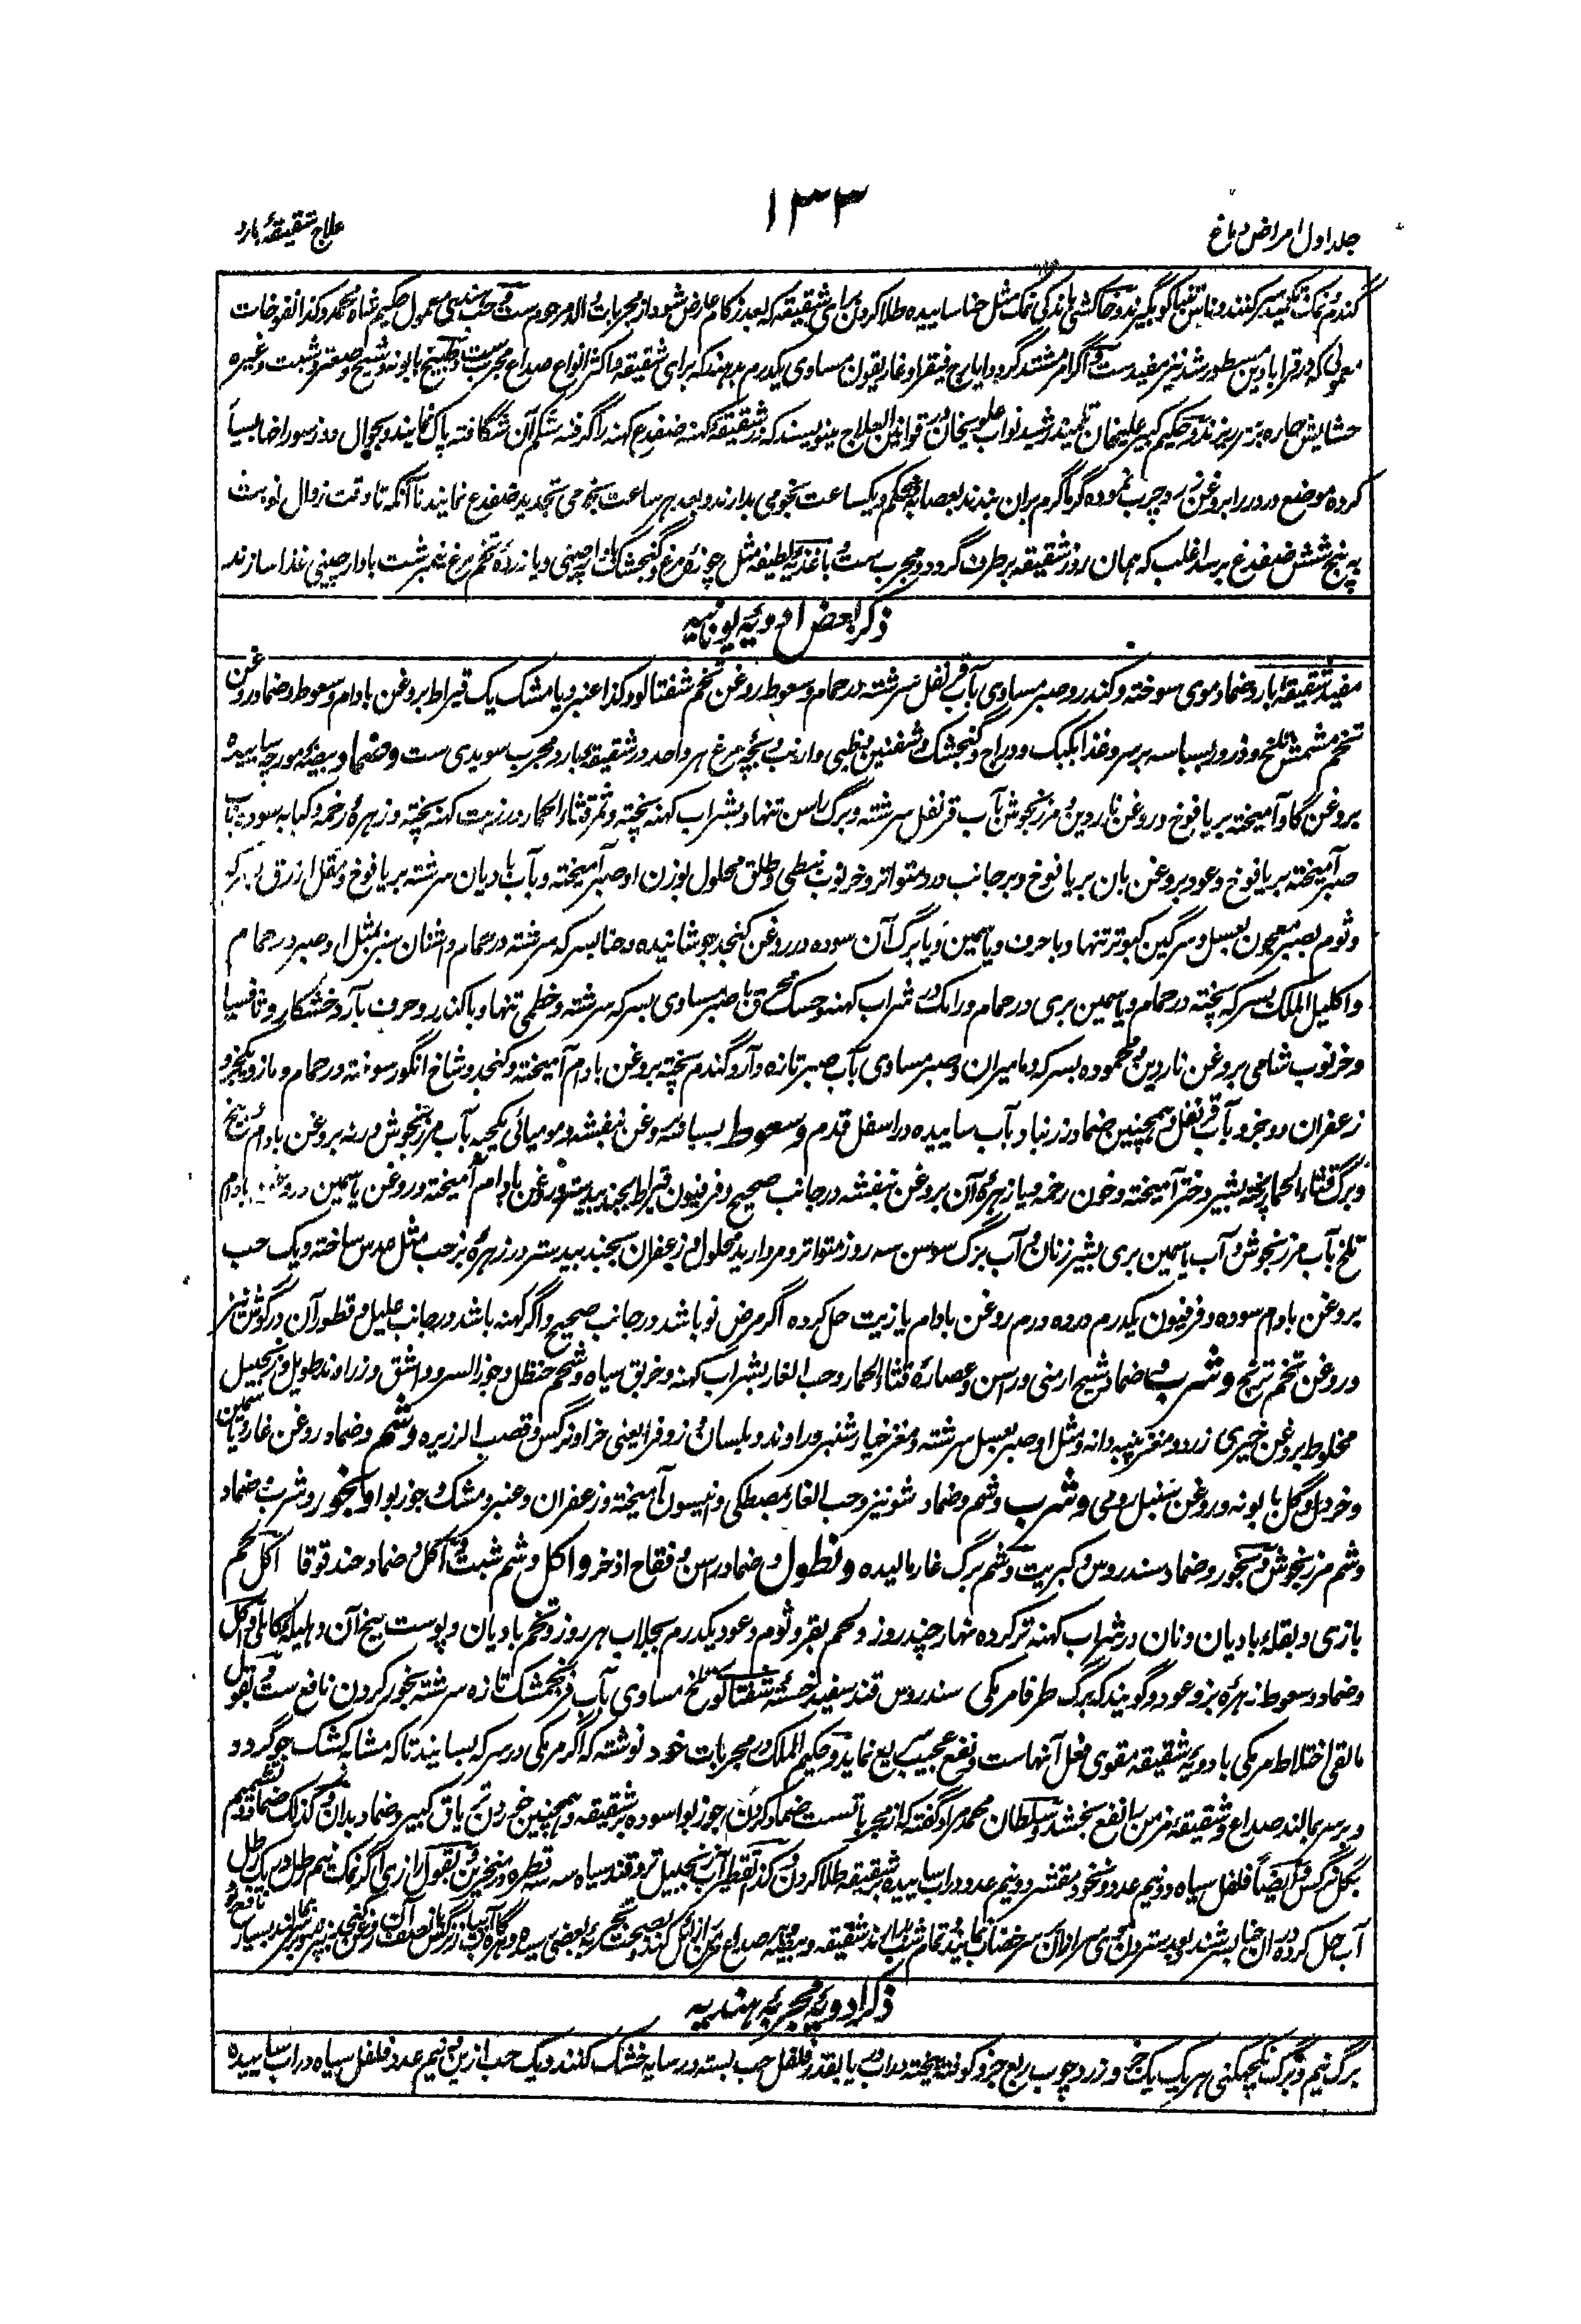 جلد اول امراض دماغ
۱۳۳
علاج شقیقهٔ بارد
گندم و نمک تکمید سر کنند و ناس تنباکو بگیرند و خاکشی باندکی نمک مثل حنا ساییده طلا کردن برای شقیقه که بعد زکام عارض شود از مجربات والد مرحوم ست و حب هندی معمول حکیم غیاث محمد و کذا نفوخات
معمولی که در قرابادین مسطور شد نیز مفیدست و اگر امر مشتد گردد ایارج فیقرا و غاریقون مساوی یکدرم بدهند که برای شقیقه و اکثر انواع صداع مجرب ست و طبیخ بابونه و شیح و صعتر و شبت و غیره
حشایش حاره بر سر ریزند و حکیم کبیر علیخان تلمیذ رشید نواب علویخان در قوانین العلاج مینویسند که در شقیقه کهنه ضفدع کهنه را گرفته شکم آن شگافته پاک نمایند و بجوال دوز سوراخها بسیار
کرده موضع درد را بروغن چرب نموده گرماگرم بران بندند بعصابه محکم و یکساعت نجومی بدارند و بعد هر ساعت نجومی تجدید ضفدع نمایند تا آنکه تا وقت زوال نوبت
به پنج شش ضفدع برسد اغلب که همان روز شقیقه برطرف گردد و مجرب ست و باغذیه لطیفه مثل چوزه مرغ و گنجشک با دارچینی و یا زرده تخم مرغ نیمبرشت با دارچینی غذا سازند
ذکر بعض ادویهٔ یونانیه
مفید شقیقهٔ بارد ضماد موی سوخته و کندر و صبر مساوی بآب قرنفل سرشته در حمام و سعوط روغن تخم شفتالو و کذا عنبر و یا مشک یک قیراط بروغن بادام و سعوط و ضماد روغن
تخم مشمش تلخ و ذرور بسباسه بر سر و غذا بکبک و دراج و گنجشک و شفنین و ظبی و ارنب و بچه مرغ هر واحد در شقیقه بارد مجرب سویدی ست و ضماد بیضه مورچه ساییده
بروغن گاو آمیخته بر یافوخ و روغن ناردین و مرزنجوش بآب قرنفل سرشته و برگ راسن تنها و بشراب کهنه پخته و ثمر قثاء الحمار در زیت کهنه پخته و زهرهٔ رخمه و کبابه سوده بآب
صبر آمیخته بر یافوخ و عود بروغن بان بر یافوخ و بر جانب درد متواتر و خرنوب نبطی و طلق محلول بوزن او صبر آمیخته و بآب بادیان سرشته بر یافوخ و مقل ازرق بسرکه
و ثوم بصبر معجون بعسل و سرگین کبوتر تنها و با حرف و یاسمین و یا برگ آن سوده در روغن کنجد جوشانیده و حنا بسرکه سرشته در حمام و اشنان سبز بمثل او صبر در حمام
و اکلیل الملک بسرکه پخته در حمام و یاسمین بری در حمام و رامک در شراب کهنه و حسک محرق با صبر مساوی بسرکه سرشته و خطمی تنها و با کندر و حرف بآرد خشکار و تافسیا
و خرنوب شامی بروغن ناردین و محموده بسرکه و مامیران و صبر مساوی بآب صبر تازه و آرد گندم پخته بروغن بادام آمیخته و کنجد و شاخ انگور سوخته در حمام و مازو یکجزو
زعفران دو جزو بآب قرنفل و همچنین ضماد زرنباد بآب ساییده در اسفل قدم و سعوط بسباسه و روغن بنفشه و مومیائی یکحبه بآب مرزنجوش ورنه بروغن بادام تلخ
و برگ قثاء الحمار پخته بشیر دختر آمیخته و خون رخمه و یا زهرهٔ آن بروغن بنفشه در جانب صحیح و فرفیون قیراط بجندبیدستر و روغن بادام آمیخته و روغن یاسمین و روغن بادام
تلخ بآب مرزنجوش و آب یاسمین بری بشیر زنان و آب برگ سوسن سه روز متواتر و مروارید محلول و زعفران بجندبیدستر در زهرهٔ بز حب مثل عدس ساخته و یک حب
بروغن بادام سوده و فرفیون یکدرم در ده درم روغن بادام یا زیت حل کرده اگر مرض نو باشد در جانب صحیح و اگر کهنه باشد در جانب علیل و قطور آن در گوش نیز
و روغن تخم ترنج و شرب و ضماد شیح ارمنی و راسن و عصارهٔ قثاء الحمار و حب الغار بشراب کهنه و خربق سیاه و شحم حنظل و جوز السرو و اشق و زراوند طویل و زنجبیل
مخلوط بروغن خیری زرد و مغز پنبه دانه و مثل او صبر بعسل سرشته و مغز خیار شنبر و راوند و بلسان و زوفرا یعنی حزا و نرگس و قصب الزریره و شم و ضماد روغن غار و یاسمین
و خردل و گل بابونه و روغن سنبل رومی و شرب و شم و ضماد شونیز و حب الغار بمصطکی و انیسون آمیخته و زعفران و عنبر و مشک و جوزبوا و بخور و شرب و ضماد
و شم مرزنجوش و بخور و ضماد سندروس و کبریت و شم برگ غار مالیده و نطول و ضماد راسن و فقاح اذخر و اکل و شم شبت و اکل و ضماد حندقوقا اکل لحم
بازی و بقله بادیان و نان در شراب کهنه تر کرده نهار چند روز و لحم بقر و ثوم و عود یکدرم بجلاب هر روز و تخم بادیان و پوست بیخ آن و هلیلهٔ کابلی و اکل
و ضماد و سعوط زهرهٔ بز و عود و گویند که برگ طرفا مرمکی سندروس قند سفید خستهٔ شفتالو تلخ مساوی بآب فرنجمشک تازه سرشته بخور کردن نافع ست و بقول
مالقی اختلاط مرمکی با دویهٔ شقیقه مقوی فعل آنهاست و نفع عجیب سریع نماید و حکیم الملک در مجربات خود نوشته که اگر مرمکی در سرکه بسایند تا که مشابه کشک جو گردد
و بر سر بمالند صداع و شقیقه مزمن را نفع بخشد و سلطان محمد مراد گفته که از مجربات ست ضماد کردن جوزبوا سوده بر شقیقه و همچنین خوردن تریاق کبیر و ضماد بدان و کذلک ضماد و شمیم
بگل نرگس و ایضاً فلفل سیاه دو نیم عدد و نخود مقشر دو نیم عدد در آب ساییده بر شقیقه طلا کردن و کذا تقطیر آب زنجبیل تر و قند سیاه سه سه قطره در منخرین و بقول رازی اگر نمک نیم رطل در یک رطل
آب حل کرده در ان حنا بسرشند و بعد ستردن موی سر ازان سر خضاب نمایند و تمام شب بدارند شقیقه و بیضه و صداع مزمن زائل کند
ذکر ادویهٔ مجربهٔ هندیه
برگ نیم و برگ نکچهکنی هر یک یک جزو و زرد چوب ربع جزو کوفته بیخته در آب یا بقدر فلفل حب بسته در سایه خشک کنند و یک حب ازین و نیم عدد فلفل سیاه در آب ساییده